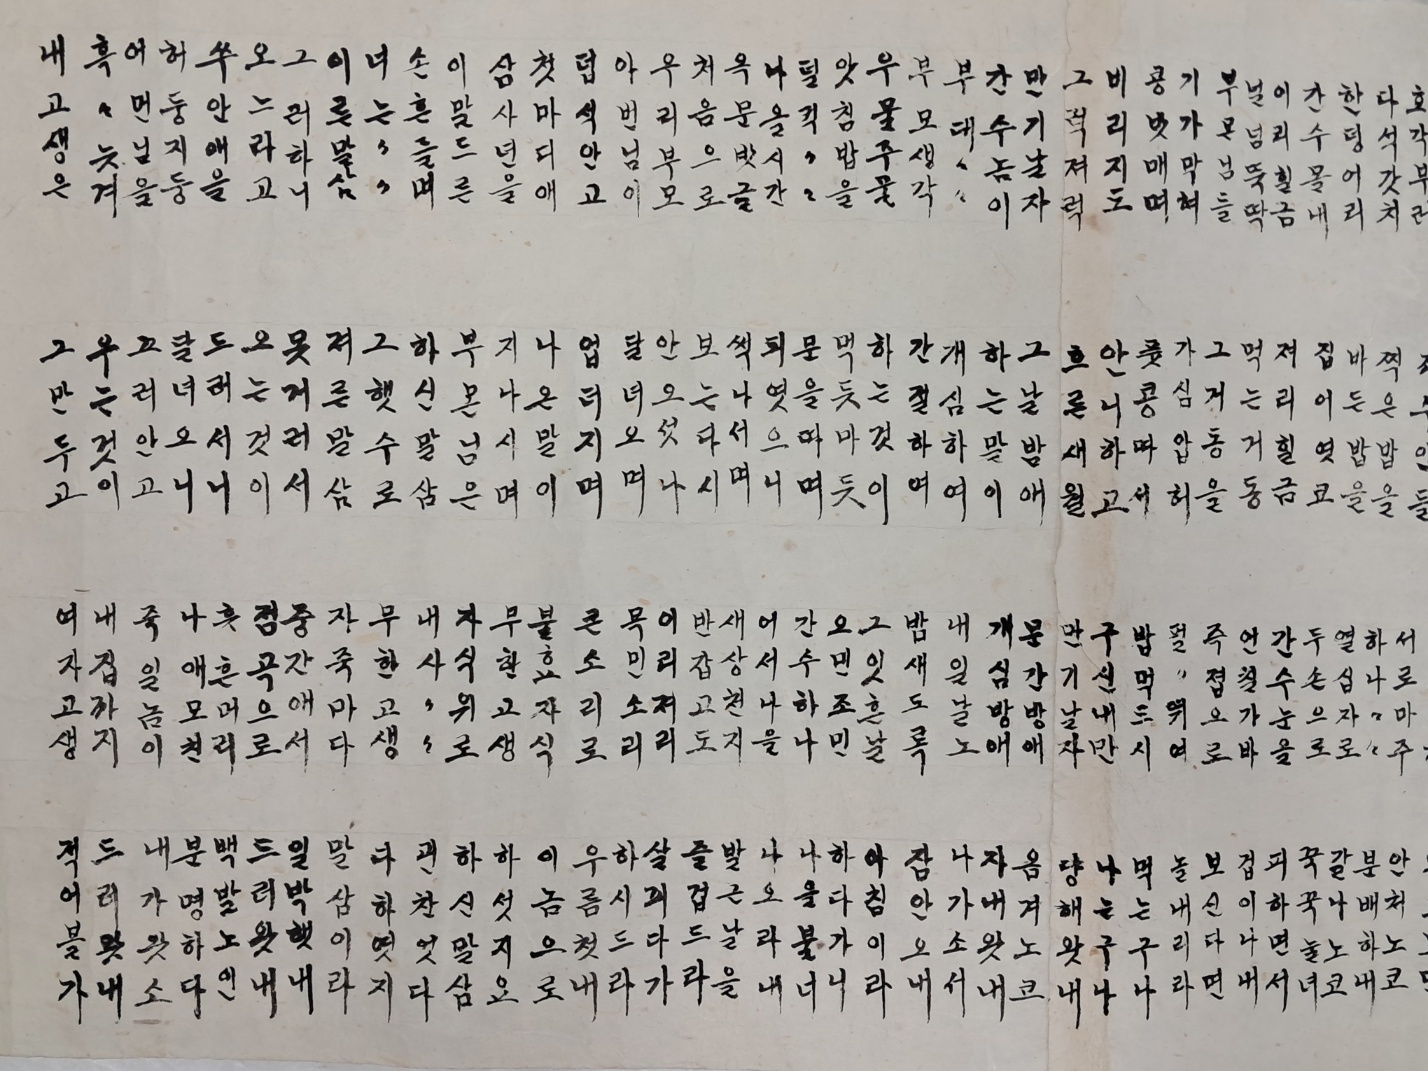 호각부러 서로마주 안처노코
다석갓처 찍은밥을 하나〃〃 분배하내
한덩어리 바든밥을 열십자로 갈나노코
간수몰내 집어엿코 두손으로 꾹꾹눌녀
이리휠금 져리휠금 간수눈을 피하면서
널넘뚝딱 먹는거동 언철가바 겁이나내
부몬님들 그거동을 족접오로 보신다면
기가막혀 가심압허 펄〃뛰여 놀내리라
콩밧매며 풋콩따서 밥먹드시 먹는구나
비리지도 안니하고 구신내만 나는구나
그적져럭 흐른새월 만기날자 당해왓내
만기날자 그날밤애 문간방애 옴겨노코
간수놈이 하는말이 개심방애 자내왓내
부대〃〃 개심하여 내일날노 나가소서
부모생각 간절하여 밤새도록 잠안오내
우물주물 하는것이 그잇흔날 아침이라
앗침밥을 먹듯마듯 오민조민 하다가니
틸걱〃〃 문을따며 간수하나 나을불너
나올시간 되엿으니 어서나을 나오라내
옥문밧글 썩나서며 새상천지 발근날을
처음으로 보는다시 반갑고도 즐겁드라
우리부모 안오섯나 이리저리 살피다가
아번님이 달녀오며 목민소리 하시드라
덥석안고 업더지며 큰소리로 우름첫내
첫마디애 나온말이 불효자식 이놈으로
삼사년을 지나시며 무한고생 하섯지오
이말드른 부몬님은 자식위로 하신말삼
손흔들며 하신말삼 내사〃〃 괸찬엇다
너는〃〃 그햇수로 무한고생 다하엿지
이른말삼 져른말삼 자죽마다 말삼이라
그러하니 못거러서 중간애서 일박햇내
오느라고 오는것이 점곡으로 드러왓내
쑤안애을 드러서니 흣흔머리 백발노인
허둥지둥 달녀오니 나애모친 분명하다
어먼님을 끄러안고 죽일놈이 내가왓소
흑〃늣겨 우는것이 내집까지 드러왓내
내고생은 그만두고 여자고생 적어볼가